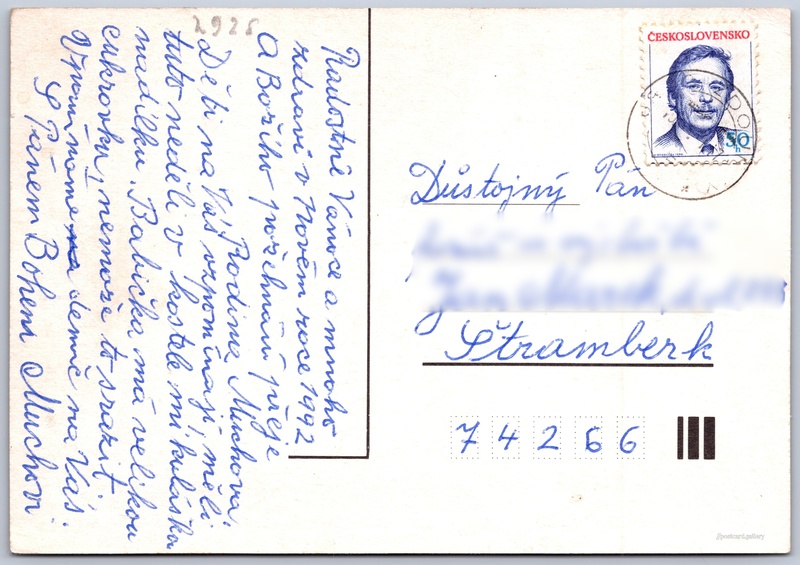 2925
Radostné Vánoce a mnoho
zdraví v Novém roce 1992
a Božího požehnání přeje
Rodina Muchova.
Děti na Vás vzpomínají, měli
tuto neděli v kostele mikulášku
nadílku. Babička má velikou
cukrovku, nemože to srazit.
Vzpomínáme na denně na Vás.
S Pánem Bohem Muchovi.
ČESKOSLOVENSKO
50
h
Důstojný Pán
Štramberk
74266